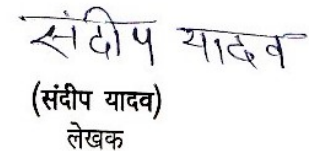 संदीप यादव
(संदीप यादव)
लेखक